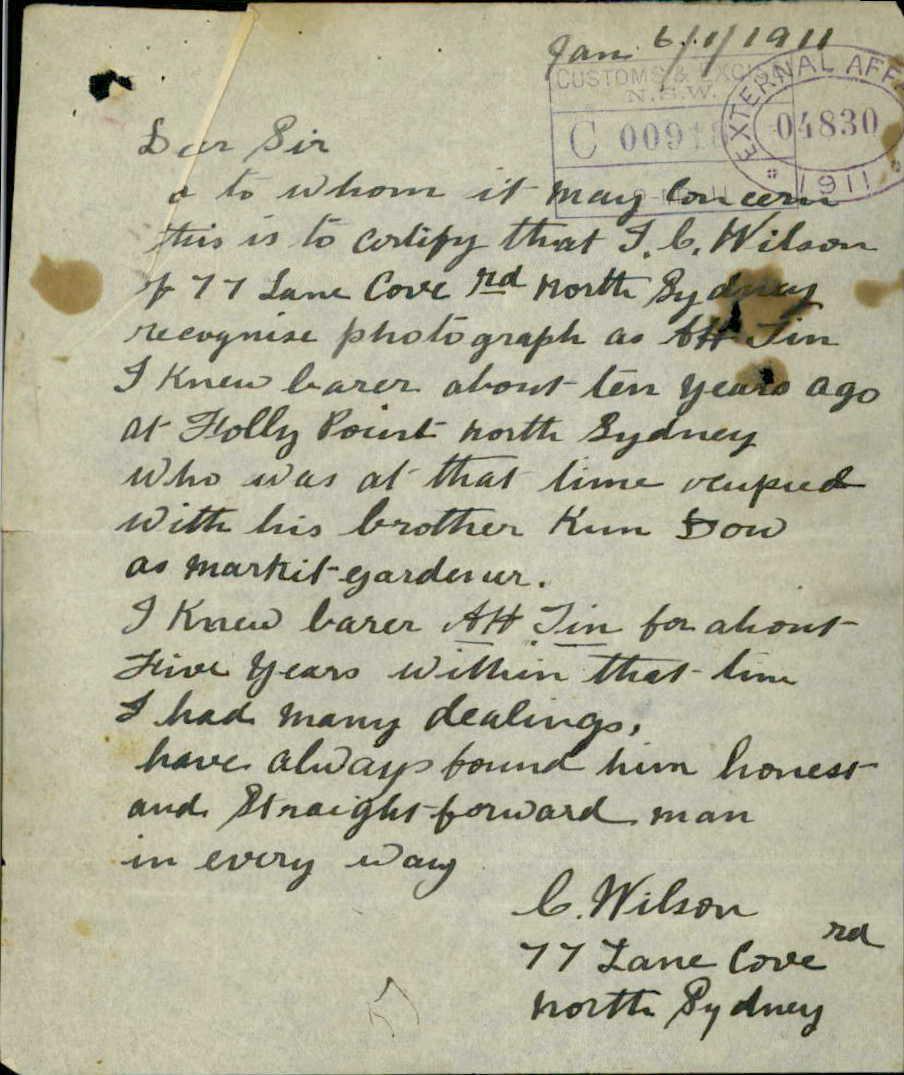 Jan. 6/1/1911
CUSTOMS & EXCISE
N.S.W.
C 0091
EXTERNAL AFF
04830
1911
Dear Sir
o to whom it may Concern
this is to certify that I. C. Wilson
of 77 Lane Cove rd North Sydney
recognise photograph as AH Tin
I Knew barer about ten years ago
at Folly Point North Sydney
who was at that time
with his brother Kum Dow
as markit gardener.
I Knew barer AH Tin for about
Five Years within that time
I had many dealings,
have always found him honest
and Straight forward man
in every way
C. Wilson
77 Lane Cove rd
North Sydney